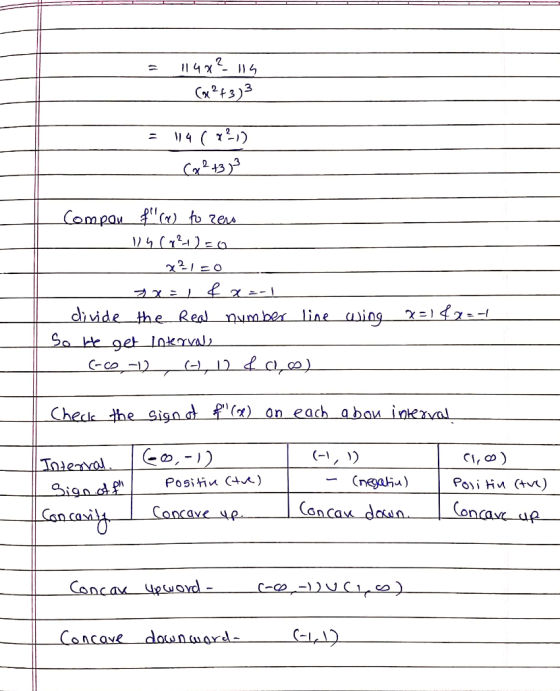 = 114x² - 114
(x²+3)³
= 114 (x²-1)
(x²+3)³
Compare f''(x) to zero
114(x²-1) = 0
x²-1 = 0
⇒ x = 1 & x = -1
divide the Real number line using x=1 & x=-1
So we get Intervals
(-∞, -1), (-1, 1) & (1, ∞)
Check the sign of f''(x) on each above interval.
Interval. (-∞, -1) (-1, 1) (1, ∞)
Sign of f'' Positive (+ve) - (negative) Positive (+ve)
Concavity Concave up. Concave down. Concave up
Concave upword - (-∞, -1) ∪ (1, ∞)
Concave downward - (-1, 1)